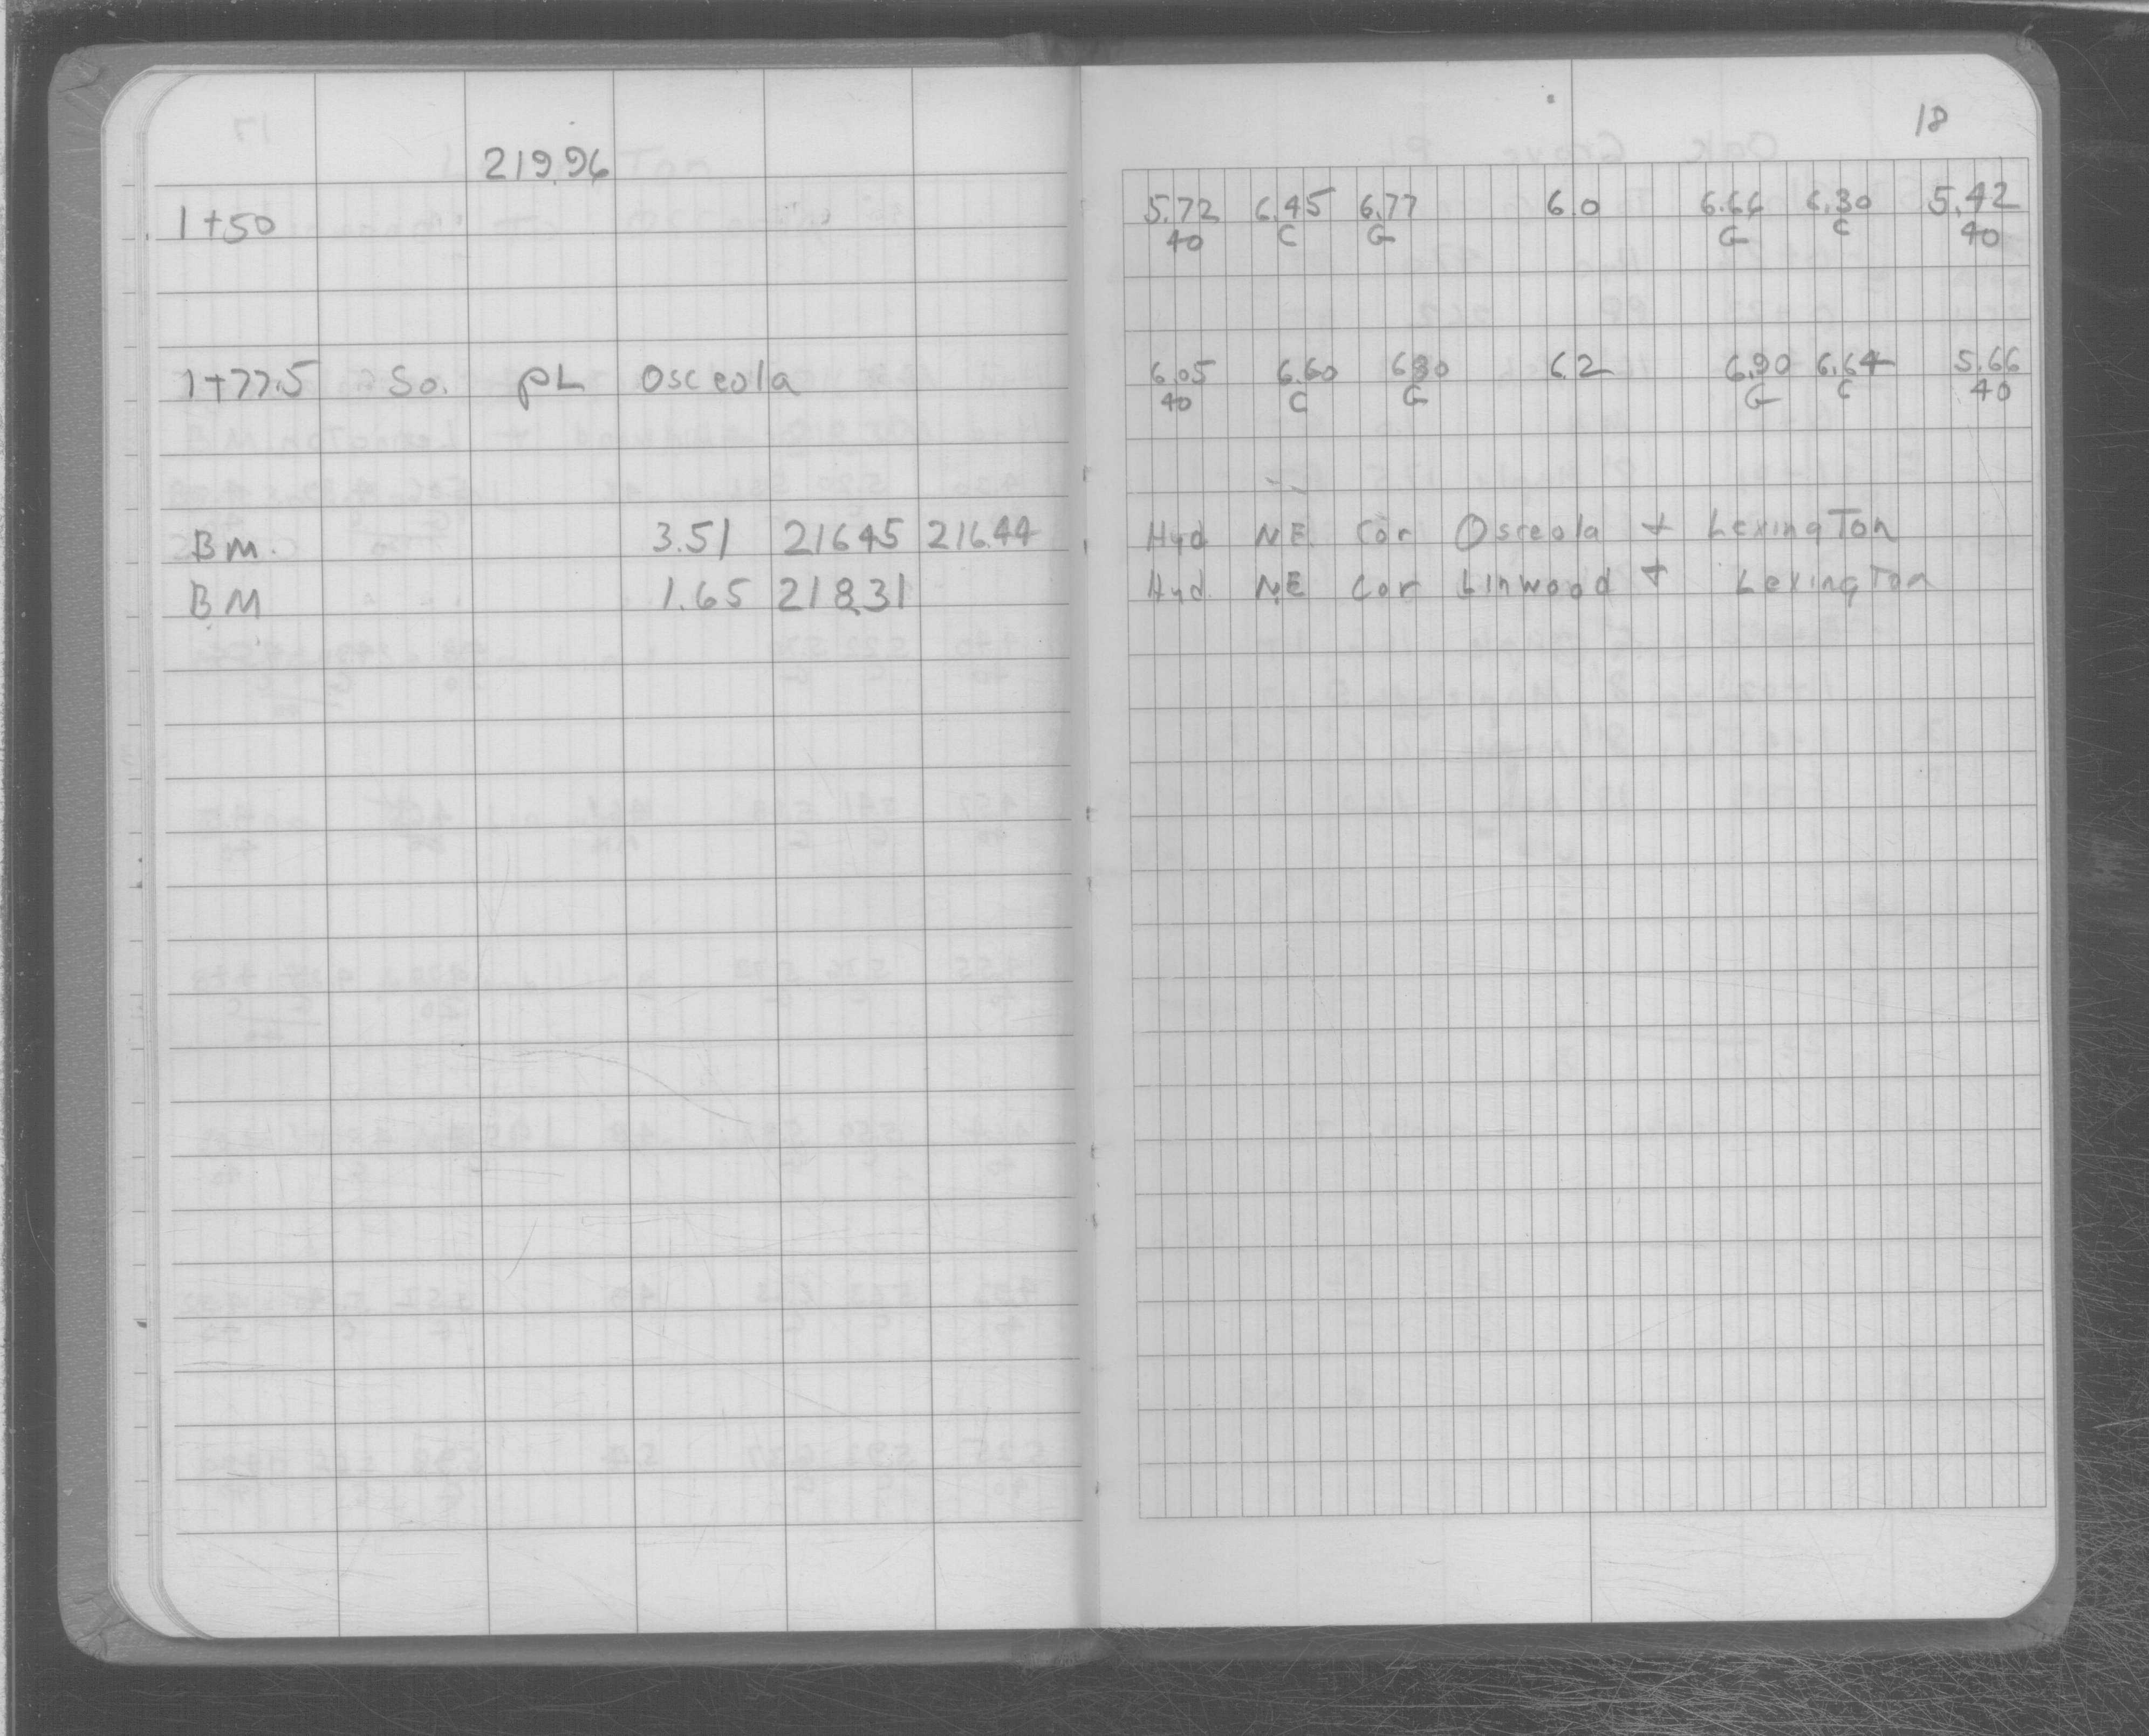 18
219.96
1+50 5.72 6.45 6.77 6.0 6.66 6.30 5.42
40 C G G C 40
1+77.5 So. PL Osceola 6.05 6.60 6.80 6.2 6.90 6.64 5.66
40 C G G C 40
BM. 3.51 216.45 216.44 Hyd NE. Cor Osceola + Lexington
BM 1.65 218.31 Hyd. NE Cor Linwood + Lexington